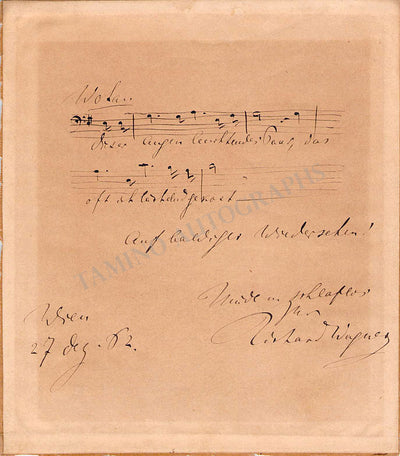 Wotan
dieser Augen leuchtendes Paar, das
oft ich lächelnd gekost
Auf baldiges Wiedersehen!
Müde u. schlaflos
Richard Wagner
Wien
27 Dez. 62.
TAMINO AUTOGRAPHS